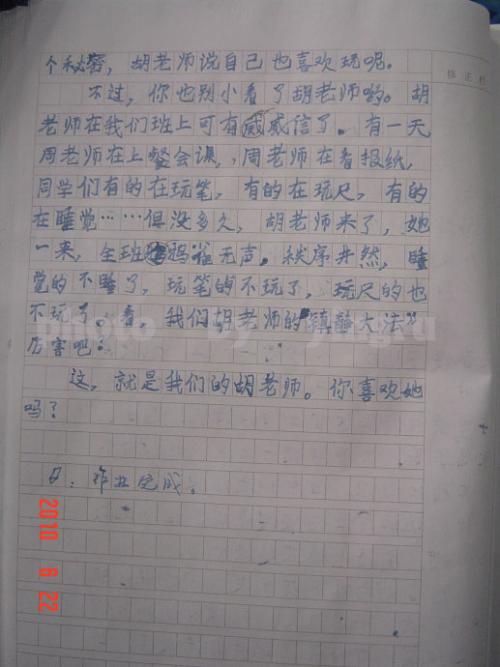 个秘密，胡老师说自己也喜欢玩呢。
修正栏
不过，你也别小看了胡老师哟。胡
老师在我们班上可有威威信了。有一天
周老师在上餐会课，周老师在看报纸，
同学们有的在玩笔，有的在玩尺，有的
在睡觉……但没多久，胡老师来了，她
一来，全班鸦雀无声。秩序井然，睡
觉的不睡了，玩笔的不玩了，玩尺的也
不玩了。看，我们胡老师的“镇静大法”
厉害吧？
photo by jingru
这，就是我们的胡老师。你喜欢她
吗？
日：作业完成。
2010 6 22